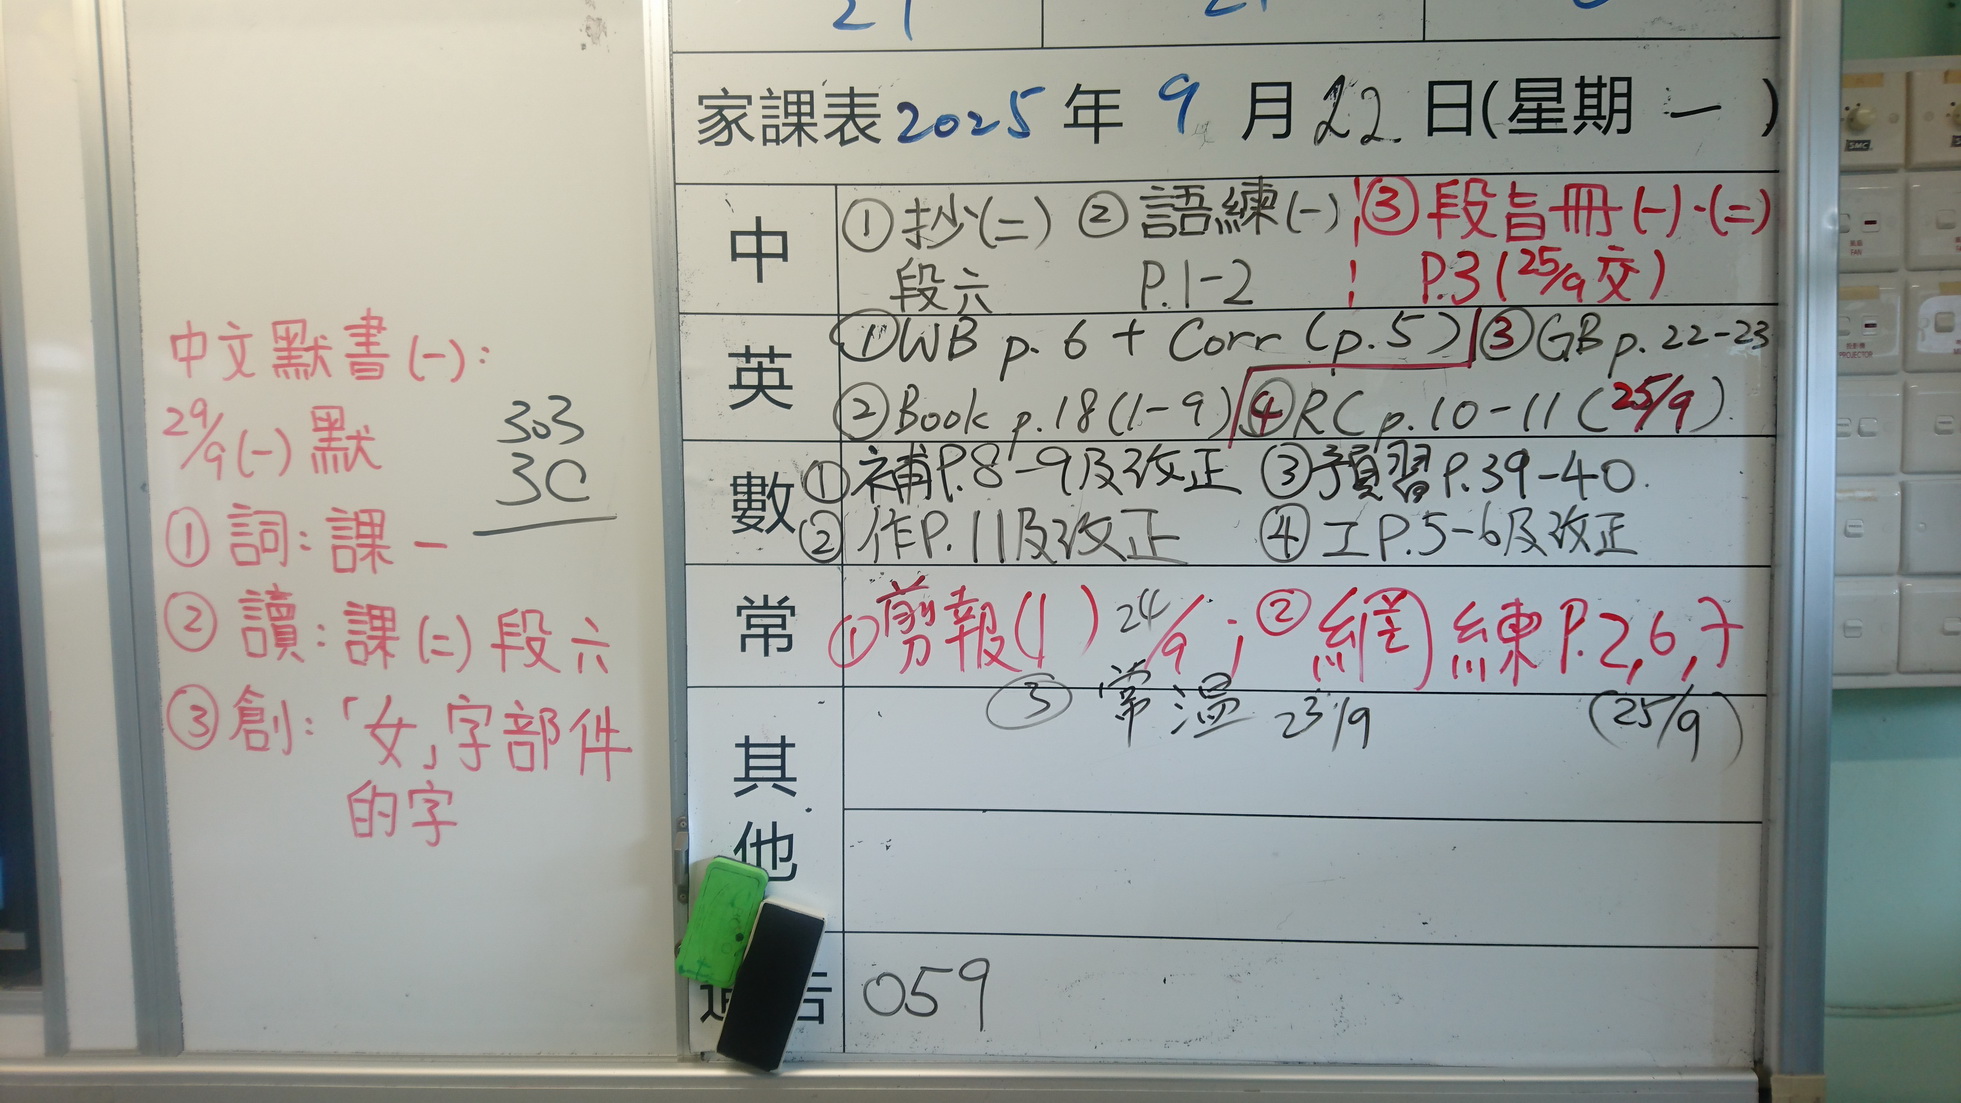 家課表2025年9月22日(星期一)
中
①抄(二) ②語練(一) ③段旨冊(一)·(二)
段六 P.1-2 P.3(25/9交)
英
①WB p. 6 + Corr (p.5) ③GB p. 22-23
②Book p.18(1-9) ④RC p.10-11(25/9).
數
①補P.8-9及改正 ③預習P.39-40.
②作P.11及改正 ④工P.5-6及改正
常
①剪報(1) 24/9; ②網) 練P.2,6,7
③常溫 23/9 (25/9)
其他
告
059
中文默書(一):
29/9(一)默
①詞:課一
②讀:課(二)段六
③創:「女」字部件
的字
303
3C
SMC
FAN
PROJECTOR